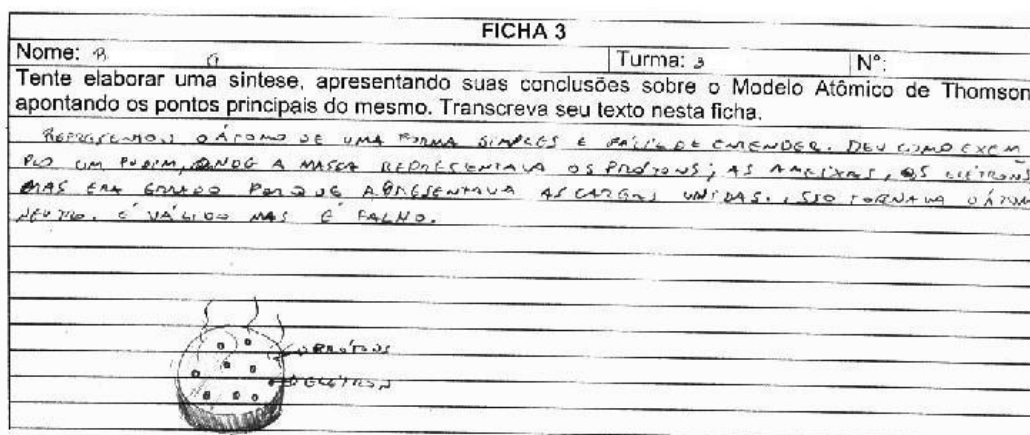 FICHA 3
Nome: R
Turma: 3 N°:
Tente elaborar uma síntese, apresentando suas conclusões sobre o Modelo Atômico de Thomson
apontando os pontos principais do mesmo. Transcreva seu texto nesta ficha.
REPRESENTOU O ÁTOMO DE UMA FORMA SIMPLES E FÁCIL DE ENTENDER. DEU COMO EXEM
PLO UM PUDIM, ONDE A MASSA REPRESENTAVA OS PRÓTONS; AS AMEIXAS, OS ELÉTRONS
MAS ERA ERRADO PORQUE APRESENTAVA AS CARGAS UNIDAS. ISSO TORNAVA O ÁTOM
NEUTRO. É VÁLIDO MAS É FALHO.
PRÓTONS
ELÉTRON